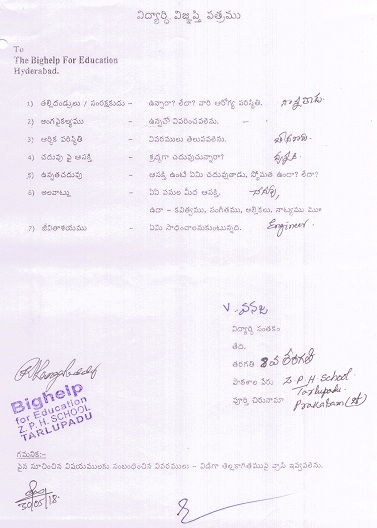 విద్యార్థి విజ్ఞప్తి పత్రము
To
The Bighelp For Education
Hyderabad.
1) తల్లిదండ్రులు / సంరక్షకుడు - ఉన్నారా? లేదా? వారి ఆరోగ్య పరిస్థితి.
2) అంగవైకల్యము - ఉన్నచో వివరించవలెను.
3) ఆర్థిక పరిస్థితి - వివరములు తెలుపవలెను.
4) చదువు పై ఆసక్తి - శ్రద్ధగా చదువుచున్నారా?
5) ఉన్నతచదువు - ఆసక్తి ఉంటే ఏమి చదువుతాడు, స్తోమత ఉందా? లేదా?
6) అలవాట్లు - ఏయే పనుల మీద ఆసక్తి,
ఉదా - కవిత్వము, సంగీతము, అల్లికలు, నాట్యము మొ॥
7) జీవితాశయము - ఏమి సాధించాలనుకుంటున్నది. Engineer.
V. వనజ
విద్యార్థి సంతకం
తేది.
తరగతి 8వ తరగతి
పాఠశాల పేరు Z.P.H School
Tarlupadu.
పూర్తి చిరునామా Prakasam
Bighelp
for Education
Z.P.H. SCHOOL
TARLUPADU
గమనిక:-
పైన సూచించిన విషయములకు సంబంధించిన వివరములు - విడిగా తెల్లకాగితముపై వ్రాసి ఇవ్వవలెను.
30/05/18.